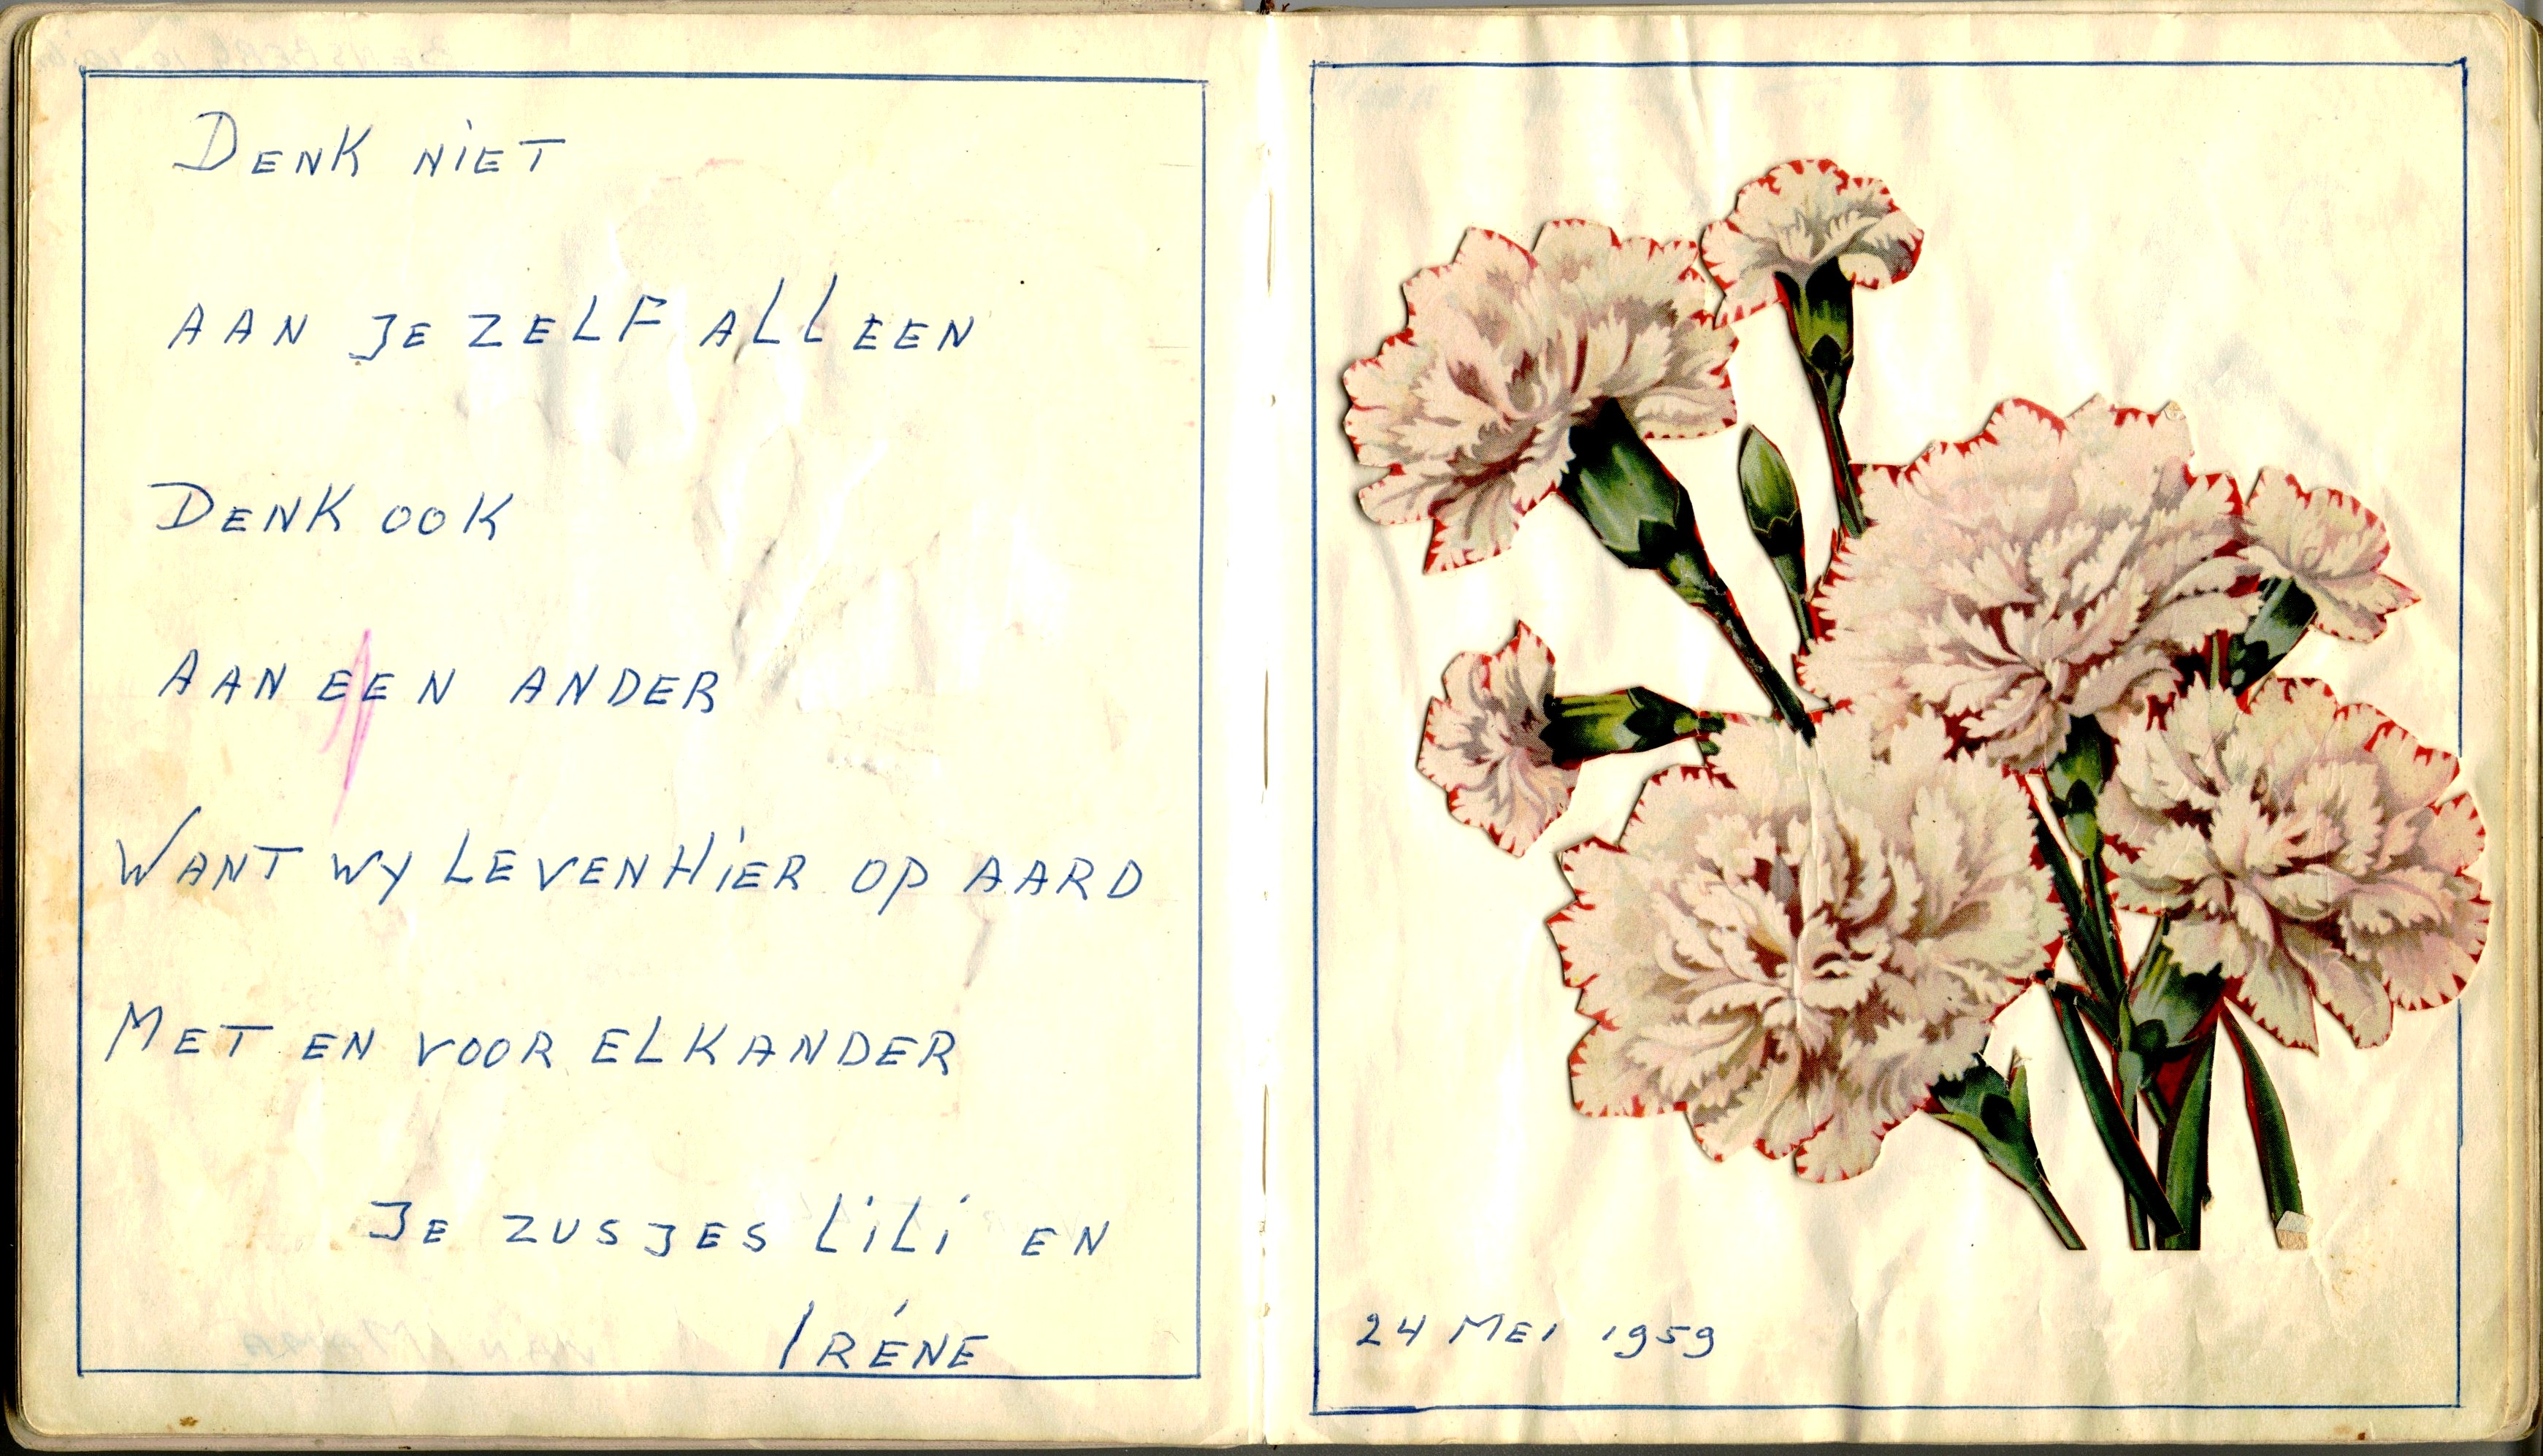 DENK NIET
AAN JE ZELF ALLEEN
DENK OOK
AAN EEN ANDER
WANT WY LEVEN HIER OP AARD
MET EN VOOR ELKANDER
JE ZUSJES LILI EN
IRÉNE
24 MEI 1959